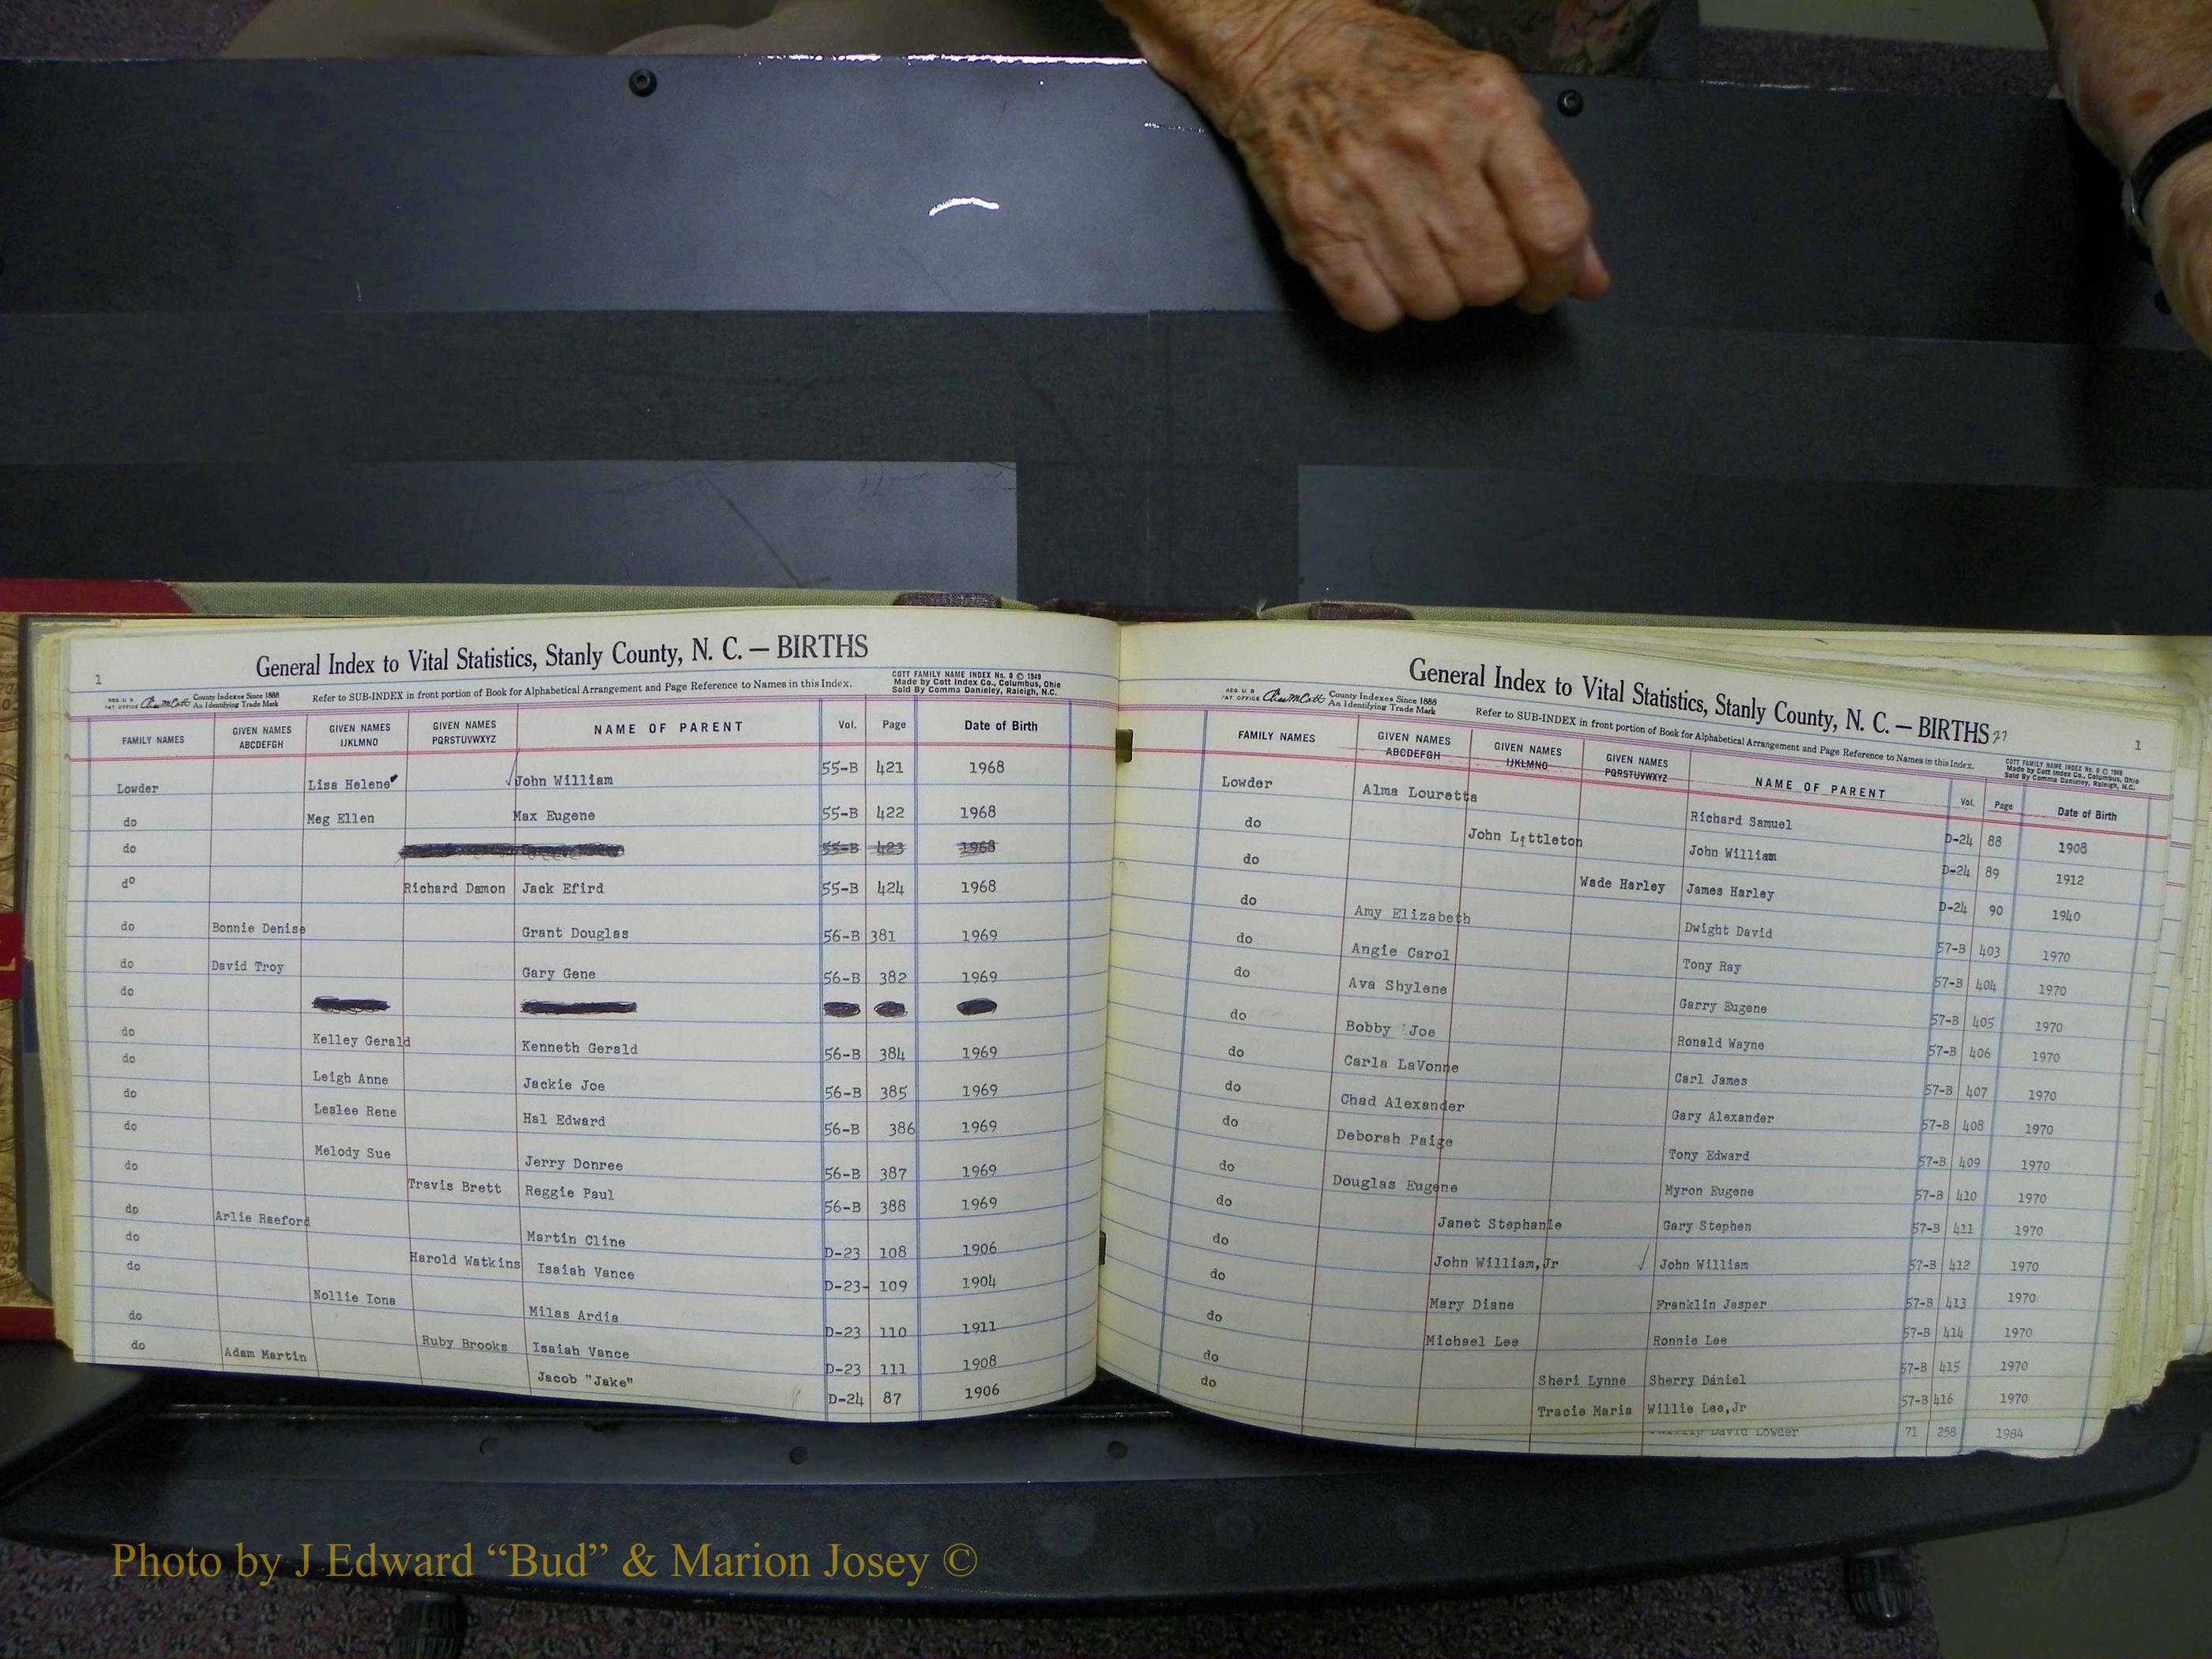 General Index to Vital Statistics, Stanly County, N. C. — BIRTHS
1
REG. U S PAT OFFICE County Indexes Since 1888 An Identifying Trade Mark
Refer to SUB-INDEX in front portion of Book for Alphabetical Arrangement and Page Reference to Names in this Index.
COTT FAMILY NAME INDEX No. 6 © 1949
Made by Cott Index Co., Columbus, Ohio
Sold By Comma Danieley, Raleigh, N.C.
FAMILY NAMES GIVEN NAMES ABCDEFGH GIVEN NAMES IJKLMNO GIVEN NAMES PQRSTUVWXYZ NAME OF PARENT Vol. Page Date of Birth
Lowder Lisa Helene John William 55-B 421 1968
do Meg Ellen Max Eugene 55-B 422 1968
do 55-B 423 1968
do Richard Damon Jack Efird 55-B 424 1968
do Bonnie Denise Grant Douglas 56-B 381 1969
do David Troy Gary Gene 56-B 382 1969
do
do Kelley Gerald Kenneth Gerald 56-B 384 1969
do Leigh Anne Jackie Joe 56-B 385 1969
do Leslee Rene Hal Edward 56-B 386 1969
do Melody Sue Jerry Donree 56-B 387 1969
do Travis Brett Reggie Paul 56-B 388 1969
do Arlie Raeford Martin Cline D-23 108 1906
do Harold Watkins Isaiah Vance D-23- 109 1904
do Nollie Iona Milas Ardia D-23 110 1911
do Ruby Brooks Isaiah Vance D-23 111 1908
do Adam Martin Jacob "Jake" D-24 87 1906
General Index to Vital Statistics, Stanly County, N. C. — BIRTHS 27
1
REG. U S PAT OFFICE County Indexes Since 1888 An Identifying Trade Mark
Refer to SUB-INDEX in front portion of Book for Alphabetical Arrangement and Page Reference to Names in this Index.
COTT FAMILY NAME INDEX No. 6 © 1949
Made by Cott Index Co., Columbus, Ohio
Sold By Comma Danieley, Raleigh, N.C.
FAMILY NAMES GIVEN NAMES ABCDEFGH GIVEN NAMES IJKLMNO GIVEN NAMES PQRSTUVWXYZ NAME OF PARENT Vol. Page Date of Birth
Lowder Alma Louretta Richard Samuel D-24 88 1908
do John Littleton John William D-24 89 1912
do Wade Harley James Harley D-24 90 1940
do Amy Elizabeth Dwight David 57-B 403 1970
do Angie Carol Tony Ray 57-B 404 1970
do Ava Shylene Garry Eugene 57-B 405 1970
do Bobby Joe Ronald Wayne 57-B 406 1970
do Carla LaVonne Carl James 57-B 407 1970
do Chad Alexander Gary Alexander 57-B 408 1970
do Deborah Paige Tony Edward 57-B 409 1970
do Douglas Eugene Myron Eugene 57-B 410 1970
do Janet Stephanie Gary Stephen 57-B 411 1970
do John William,Jr John William 57-B 412 1970
do Mary Diane Franklin Jasper 57-B 413 1970
do Michael Lee Ronnie Lee 57-B 414 1970
do Sheri Lynne Sherry Daniel 57-B 415 1970
do Tracie Maria Willie Lee,Jr 57-B 416 1970
David Lowder 71 258 1984
Photo by J Edward “Bud” & Marion Josey ©